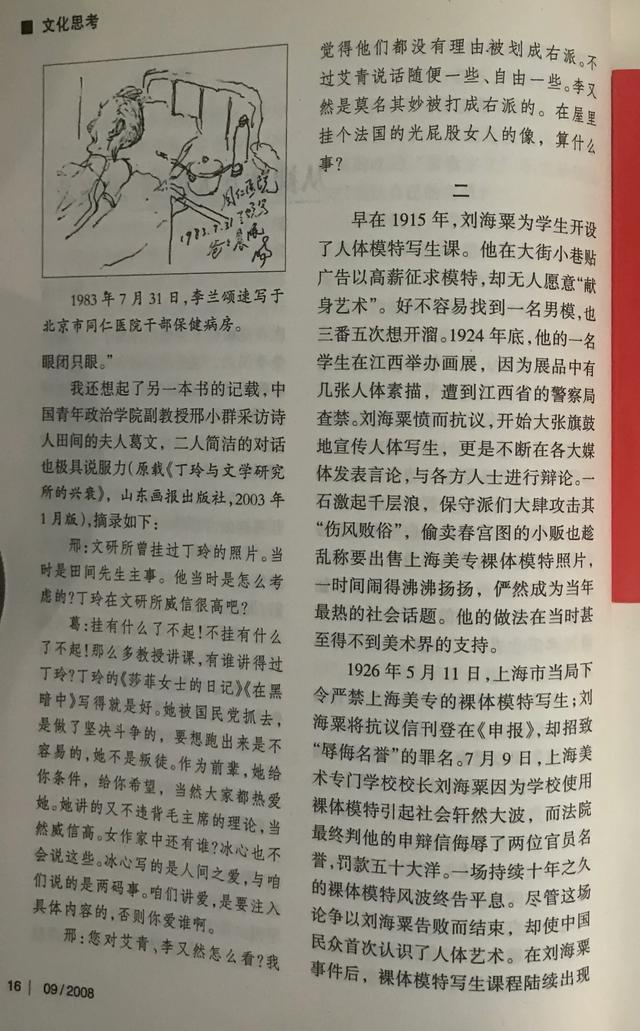 文化思考
同仁医院
1983.7.31
1983年7月31日,李兰颂速写于
北京市同仁医院干部保健病房。
眼闭只眼。”
我还想起了另一本书的记载,中
国青年政治学院副教授邢小群采访诗
人田间的夫人葛文,二人简洁的对话
也极具说服力(原载《丁玲与文学研究
所的兴衰》,山东画报出版社,2003年
1月版),摘录如下:
邢:文研所曾挂过丁玲的照片。当
时是田间先生主事。他当时是怎么考
虑的?丁玲在文研所威信很高吧?
葛:挂有什么了不起!不挂有什么
了不起!那么多教授讲课,有谁讲得过
丁玲?丁玲的《莎菲女士的日记》《在黑
暗中》写得就是好。她被国民党抓去,
是做了坚决斗争的,要想跑出来是不
容易的,她不是叛徒。作为前辈,她给
你条件,给你希望,当然大家都热爱
她。她讲的又不违背毛主席的理论,当
然威信高。女作家中还有谁?冰心也不
会说这些。冰心写的是人间之爱,与咱
们说的是两码事。咱们讲爱,是要注入
具体内容的,否则你爱谁啊。
邢:您对艾青、李又然怎么看?我
觉得他们都没有理由被划成右派。不
过艾青说话随便一些、自由一些。李又
然是莫名其妙被打成右派的。在屋里
挂个法国的光屁股女人的像,算什么
事?
二
早在1915年,刘海粟为学生开设
了人体模特写生课。他在大街小巷贴
广告以高薪征求模特,却无人愿意“献
身艺术”。好不容易找到一名男模,也
三番五次想开溜。1924年底,他的一名
学生在江西举办画展,因为展品中有
几张人体素描,遭到江西省的警察局
查禁。刘海粟愤而抗议,开始大张旗鼓
地宣传人体写生,更是不断在各大媒
体发表言论,与各方人士进行辩论。一
石激起千层浪,保守派们大肆攻击其
“伤风败俗”,偷卖春宫图的小贩也趁
乱称要出售上海美专裸体模特照片,
一时间闹得沸沸扬扬,俨然成为当年
最热的社会话题。他的做法在当时甚
至得不到美术界的支持。
1926年5月11日,上海市当局下
令严禁上海美专的裸体模特写生;刘
海粟将抗议信刊登在《申报》,却招致
“辱侮名誉”的罪名。7月9日,上海美
术专门学校校长刘海粟因为学校使用
裸体模特引起社会轩然大波,而法院
最终判他的申辩信侮辱了两位官员名
誉,罚款五十大洋。一场持续十年之久
的裸体模特风波终告平息。尽管这场
论争以刘海粟告败而结束,却使中国
民众首次认识了人体艺术。在刘海粟
事件后,裸体模特写生课程陆续出现
16 | 09/2008